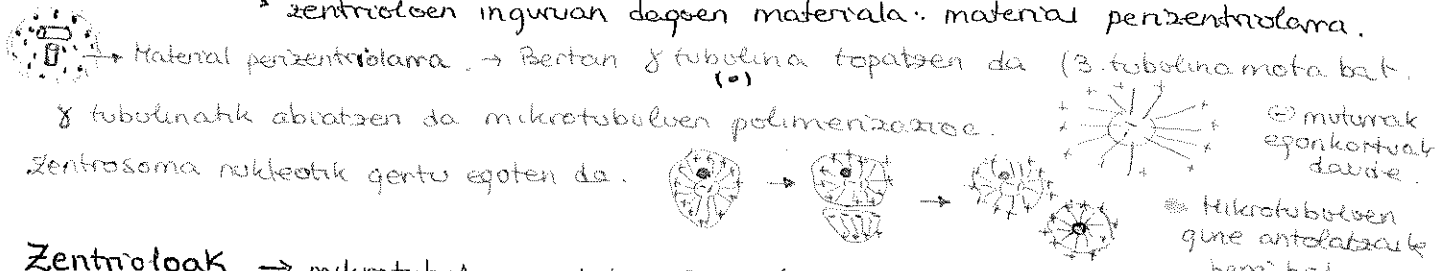 * zentrioloen inguruan dagoen materiala: material perizentriolarra.
→ Material perizentriolarra. → Bertan γ tubulina topatzen da (3. tubulina mota bat.
(•)
γ tubulinatik abiatzen da mikrotubuluen polimerizazioa.
⊖ muturrak
egonkortuak
daude.
Zentrosoma nukleotik gertu egoten da.
Mikrotubuluen
gune antolatzaile
Zentrioloak →